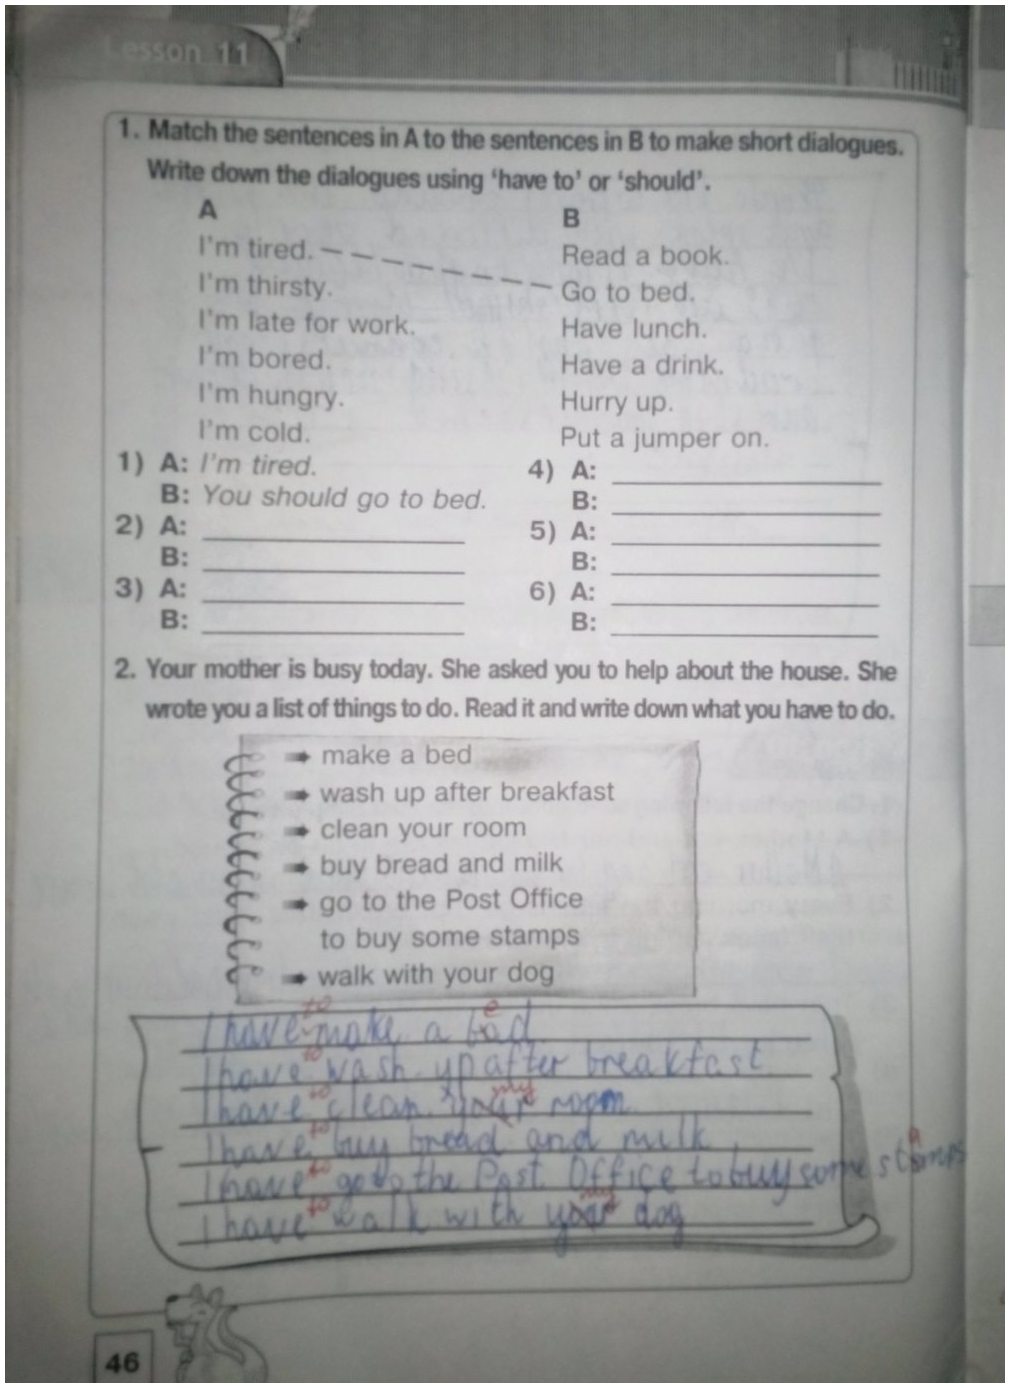 Lesson 11
1. Match the sentences in A to the sentences in B to make short dialogues.
Write down the dialogues using ‘have to’ or ‘should’.
A
I'm tired.
I'm thirsty.
I'm late for work.
I'm bored.
I'm hungry.
I'm cold.
B
Read a book.
Go to bed.
Have lunch.
Have a drink.
Hurry up.
Put a jumper on.
1) A: I'm tired.
B: You should go to bed.
2) A:
B:
3) A:
B:
4) A:
B:
5) A:
B:
6) A:
B:
2. Your mother is busy today. She asked you to help about the house. She
wrote you a list of things to do. Read it and write down what you have to do.
make a bed
wash up after breakfast
clean your room
buy bread and milk
go to the Post Office
to buy some stamps
walk with your dog
I have to make a bed
I have to wash up after breakfast
I have to clean my room
I have to buy bread and milk
I have to go to the Post Office to buy some stamps
I have to walk with my dog
46